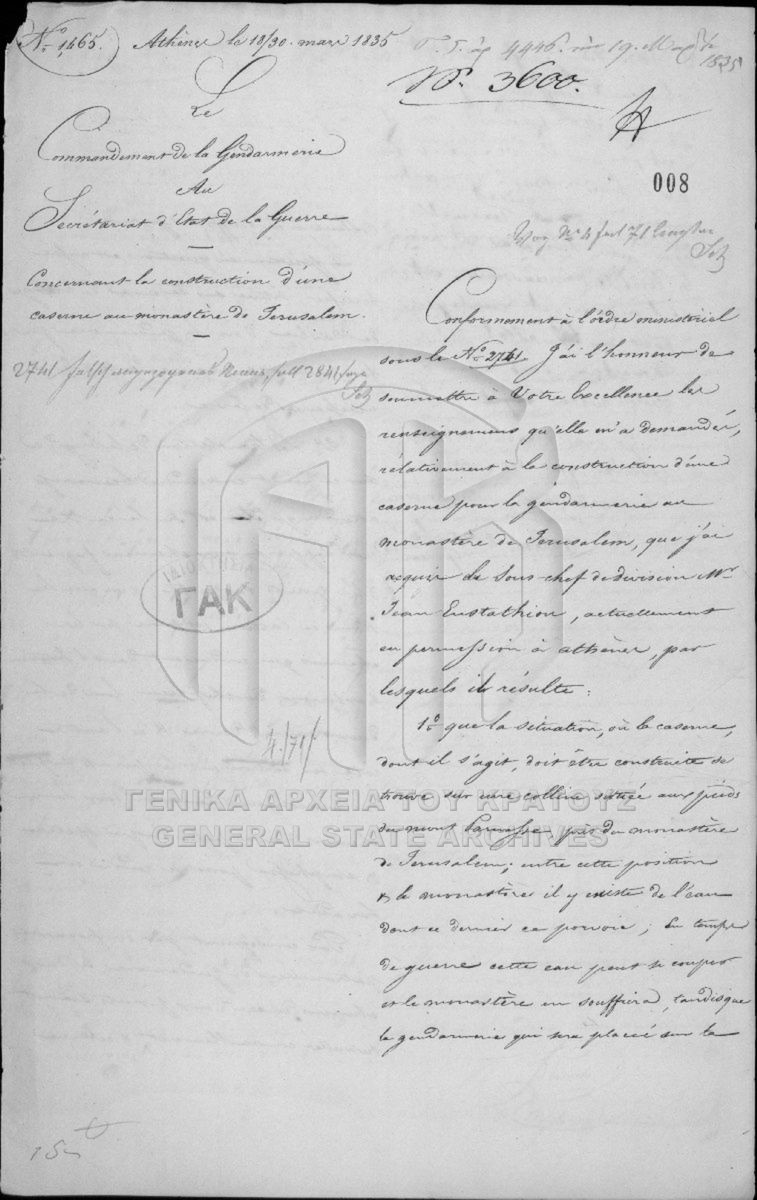 No 1465. Athènes le 18/30. mars 1835
4446. 19. 1835
No. 3600.
Le
Commandement de la Gendarmerie
Au
Secrétariat d'Etat de la Guerre
008
Concernant la construction d'une
caserne au monastère de Jerusalem.
2741
Conformement à l'ordre ministeriel
sous le No. 2741. J'ai l'honneur de
soumettre à Votre Excellence les
renseignemens qu'elle m'a demandés,
rélativement à la construction d'une
caserne pour la gendarmerie au
monastère de Jerusalem, que j'ai
acquis du Sous-chef de division Mr
Jean Eustathion, actuellement
en permission à athènes, par
lesquels il résulte:
1o que la situation, où la caserne,
dont il s'agit, doit être construite se
trouve sur une colline située aux pieds
du mont Parnasse, près du monastère
de Jerusalem; entre cette position
& le monastère il y existe de l'eau
dont ce dernier ; En temps
de guerre cette eau peut se couper
et le monastère en souffrira, tandisque
la gendarmerie qui sera placée sur la
4./71/
ΓΑΚ
ΓΕΝΙΚΑ ΑΡΧΕΙΑ ΤΟΥ ΚΡΑΤΟΥΣ
GENERAL STATE ARCHIVES